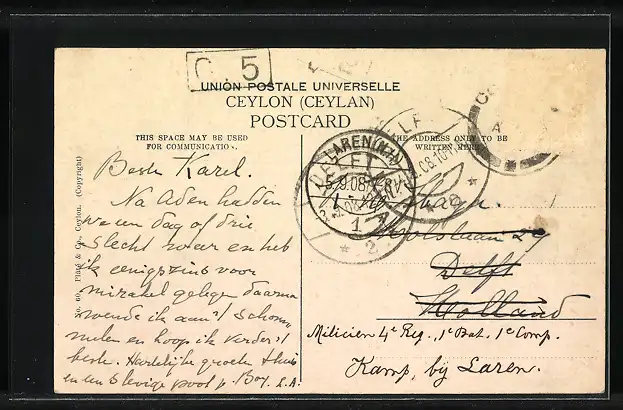 C. 5
UNION POSTALE UNIVERSELLE
CEYLON (CEYLAN)
POSTCARD
THIS SPACE MAY BE USED
FOR COMMUNICATION.
THE ADDRESS ONLY TO BE
WRITTEN HERE
No. 60. Plâté & Co., Ceylon. (Copyright)
Beste Karel.
Na Aden hadden
we een dag of drie
slecht weer en heb
ik eenigszins voor
gelegen daarna
wende ik aan 't schom
melen en hoop ik verder 't
beste. Hartelijke groeten thuis
en een stevige poot v. Boy. L.A.
LAREN
DELFT
5.9.08
1
2
Delft
Holland
Milicien 4e Reg., 1e Bat. 1e Comp.
Kamp, bij Laren.